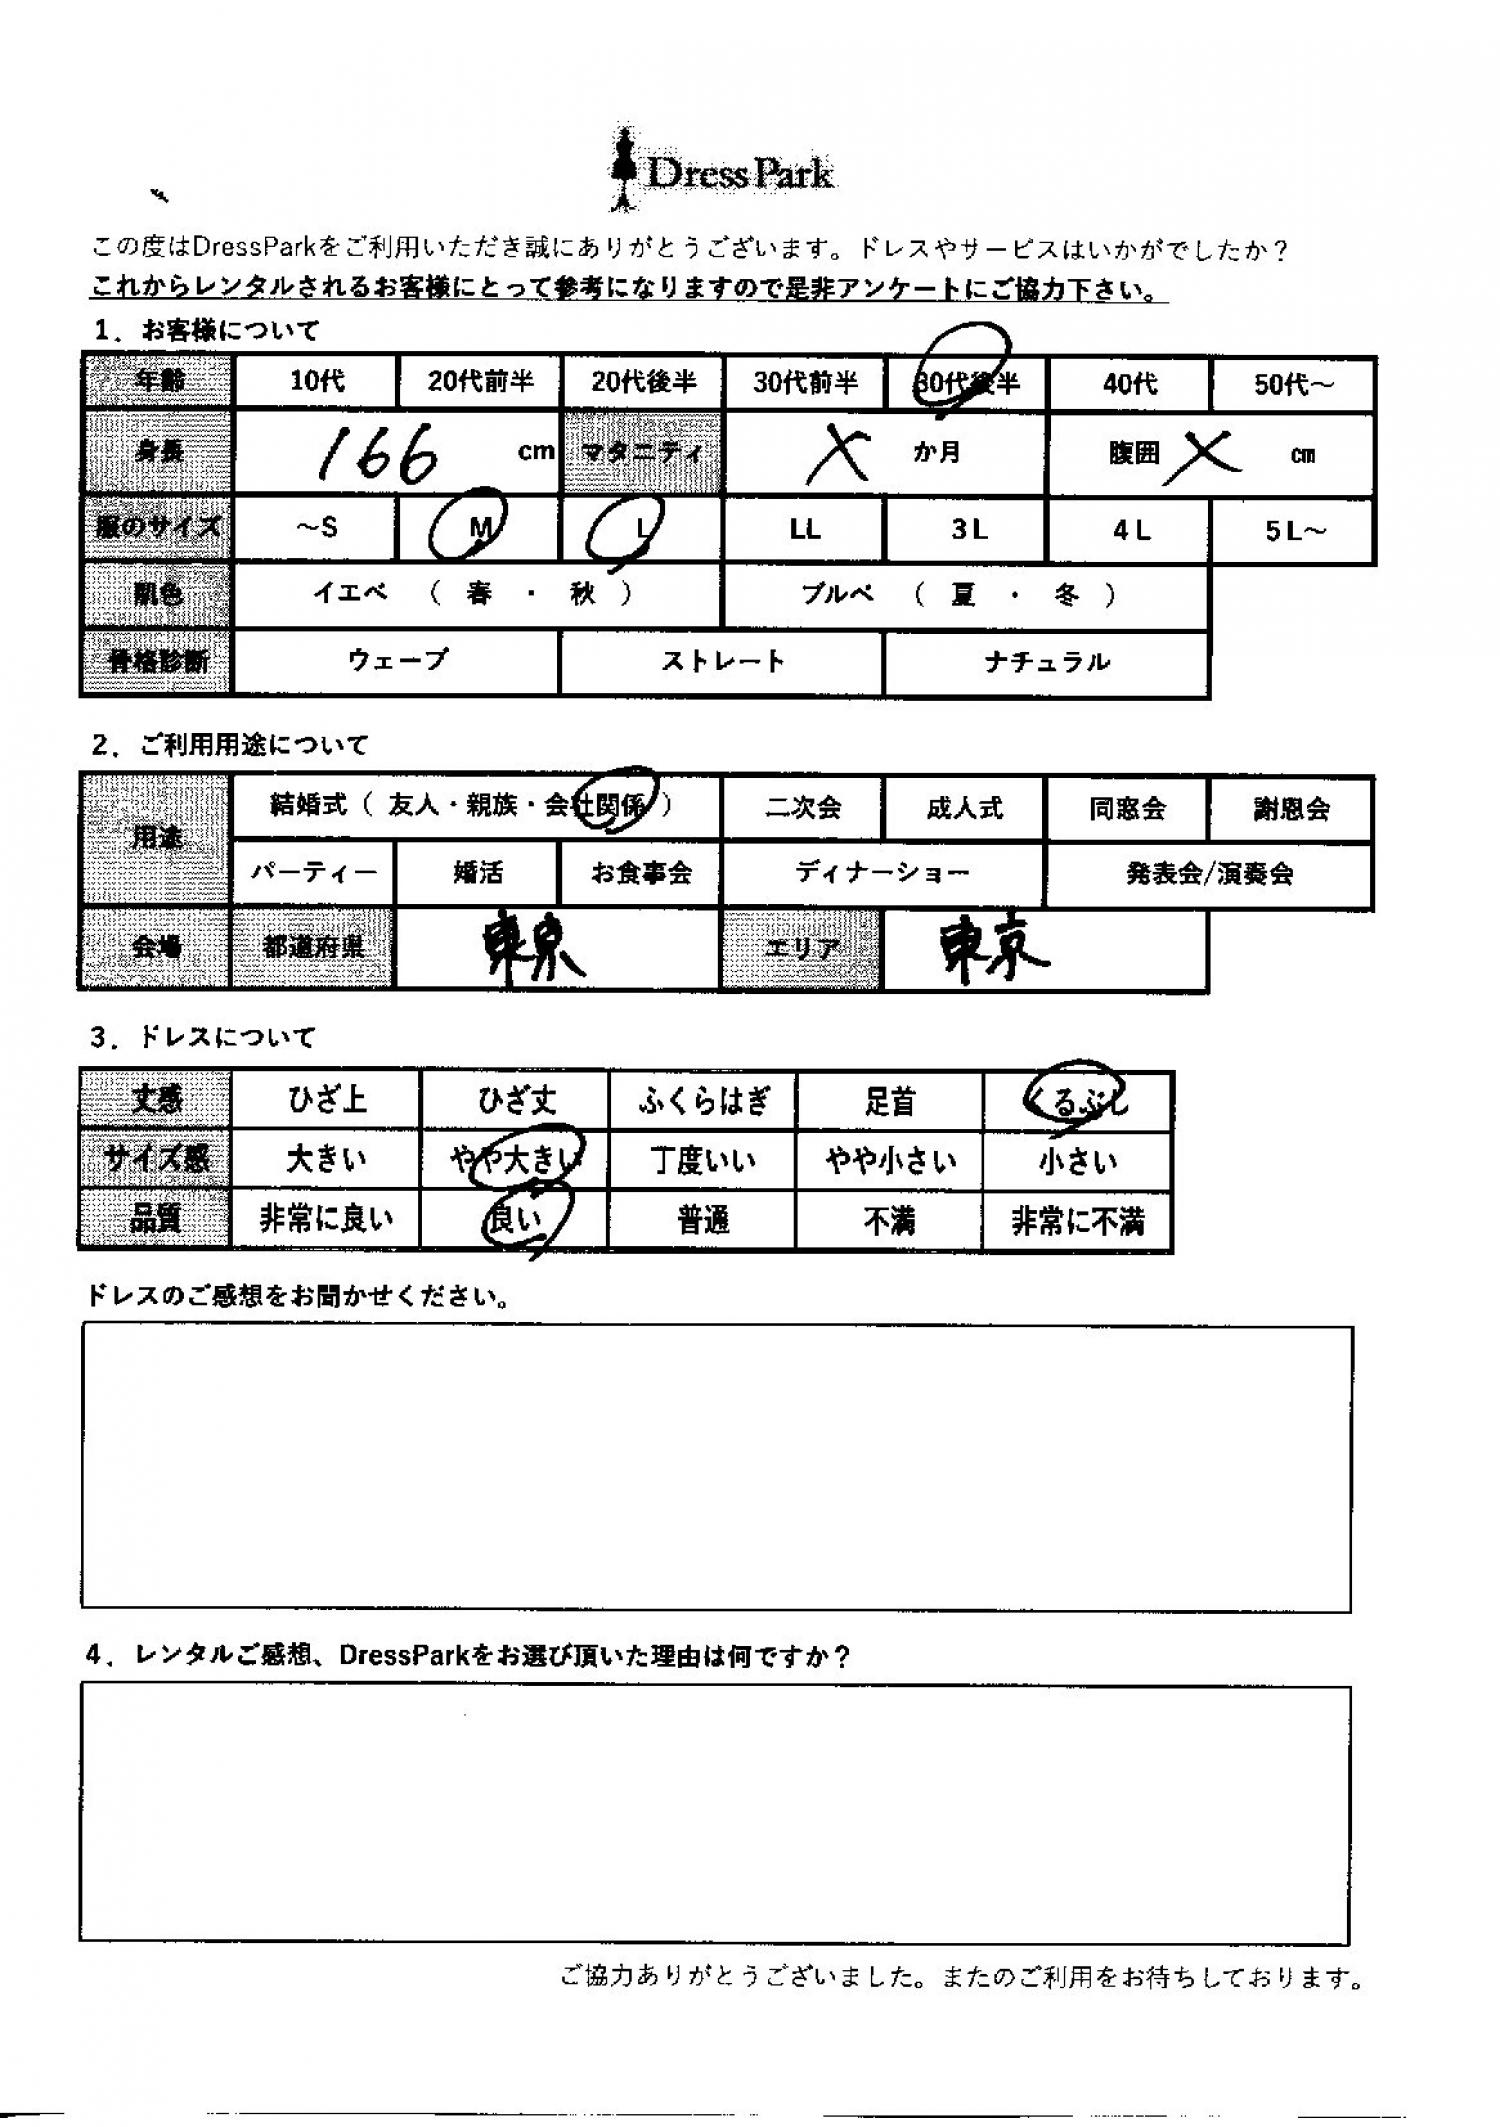 DressPark
この度はDressParkをご利用いただき誠にありがとうございます。ドレスやサービスはいかがでしたか？
これからレンタルされるお客様にとって参考になりますので是非アンケートにご協力下さい。
1．お客様について
年齢 10代 20代前半 20代後半 30代前半 30代後半 40代 50代～
身長 166 cm マタニティ × か月 腹囲 × cm
服のサイズ ～S M L LL 3L 4L 5L～
肌色 イエベ （ 春 ・ 秋 ） ブルベ （ 夏 ・ 冬 ）
骨格診断 ウェーブ ストレート ナチュラル
2．ご利用用途について
用途 結婚式（ 友人・親族・会社関係 ） 二次会 成人式 同窓会 謝恩会
パーティー 婚活 お食事会 ディナーショー 発表会/演奏会
会場 都道府県 東京 エリア 東京
3．ドレスについて
丈感 ひざ上 ひざ丈 ふくらはぎ 足首 くるぶし
サイズ感 大きい やや大きい 丁度いい やや小さい 小さい
品質 非常に良い 良い 普通 不満 非常に不満
ドレスのご感想をお聞かせください。
4．レンタルご感想、DressParkをお選び頂いた理由は何ですか？
ご協力ありがとうございました。またのご利用をお待ちしております。